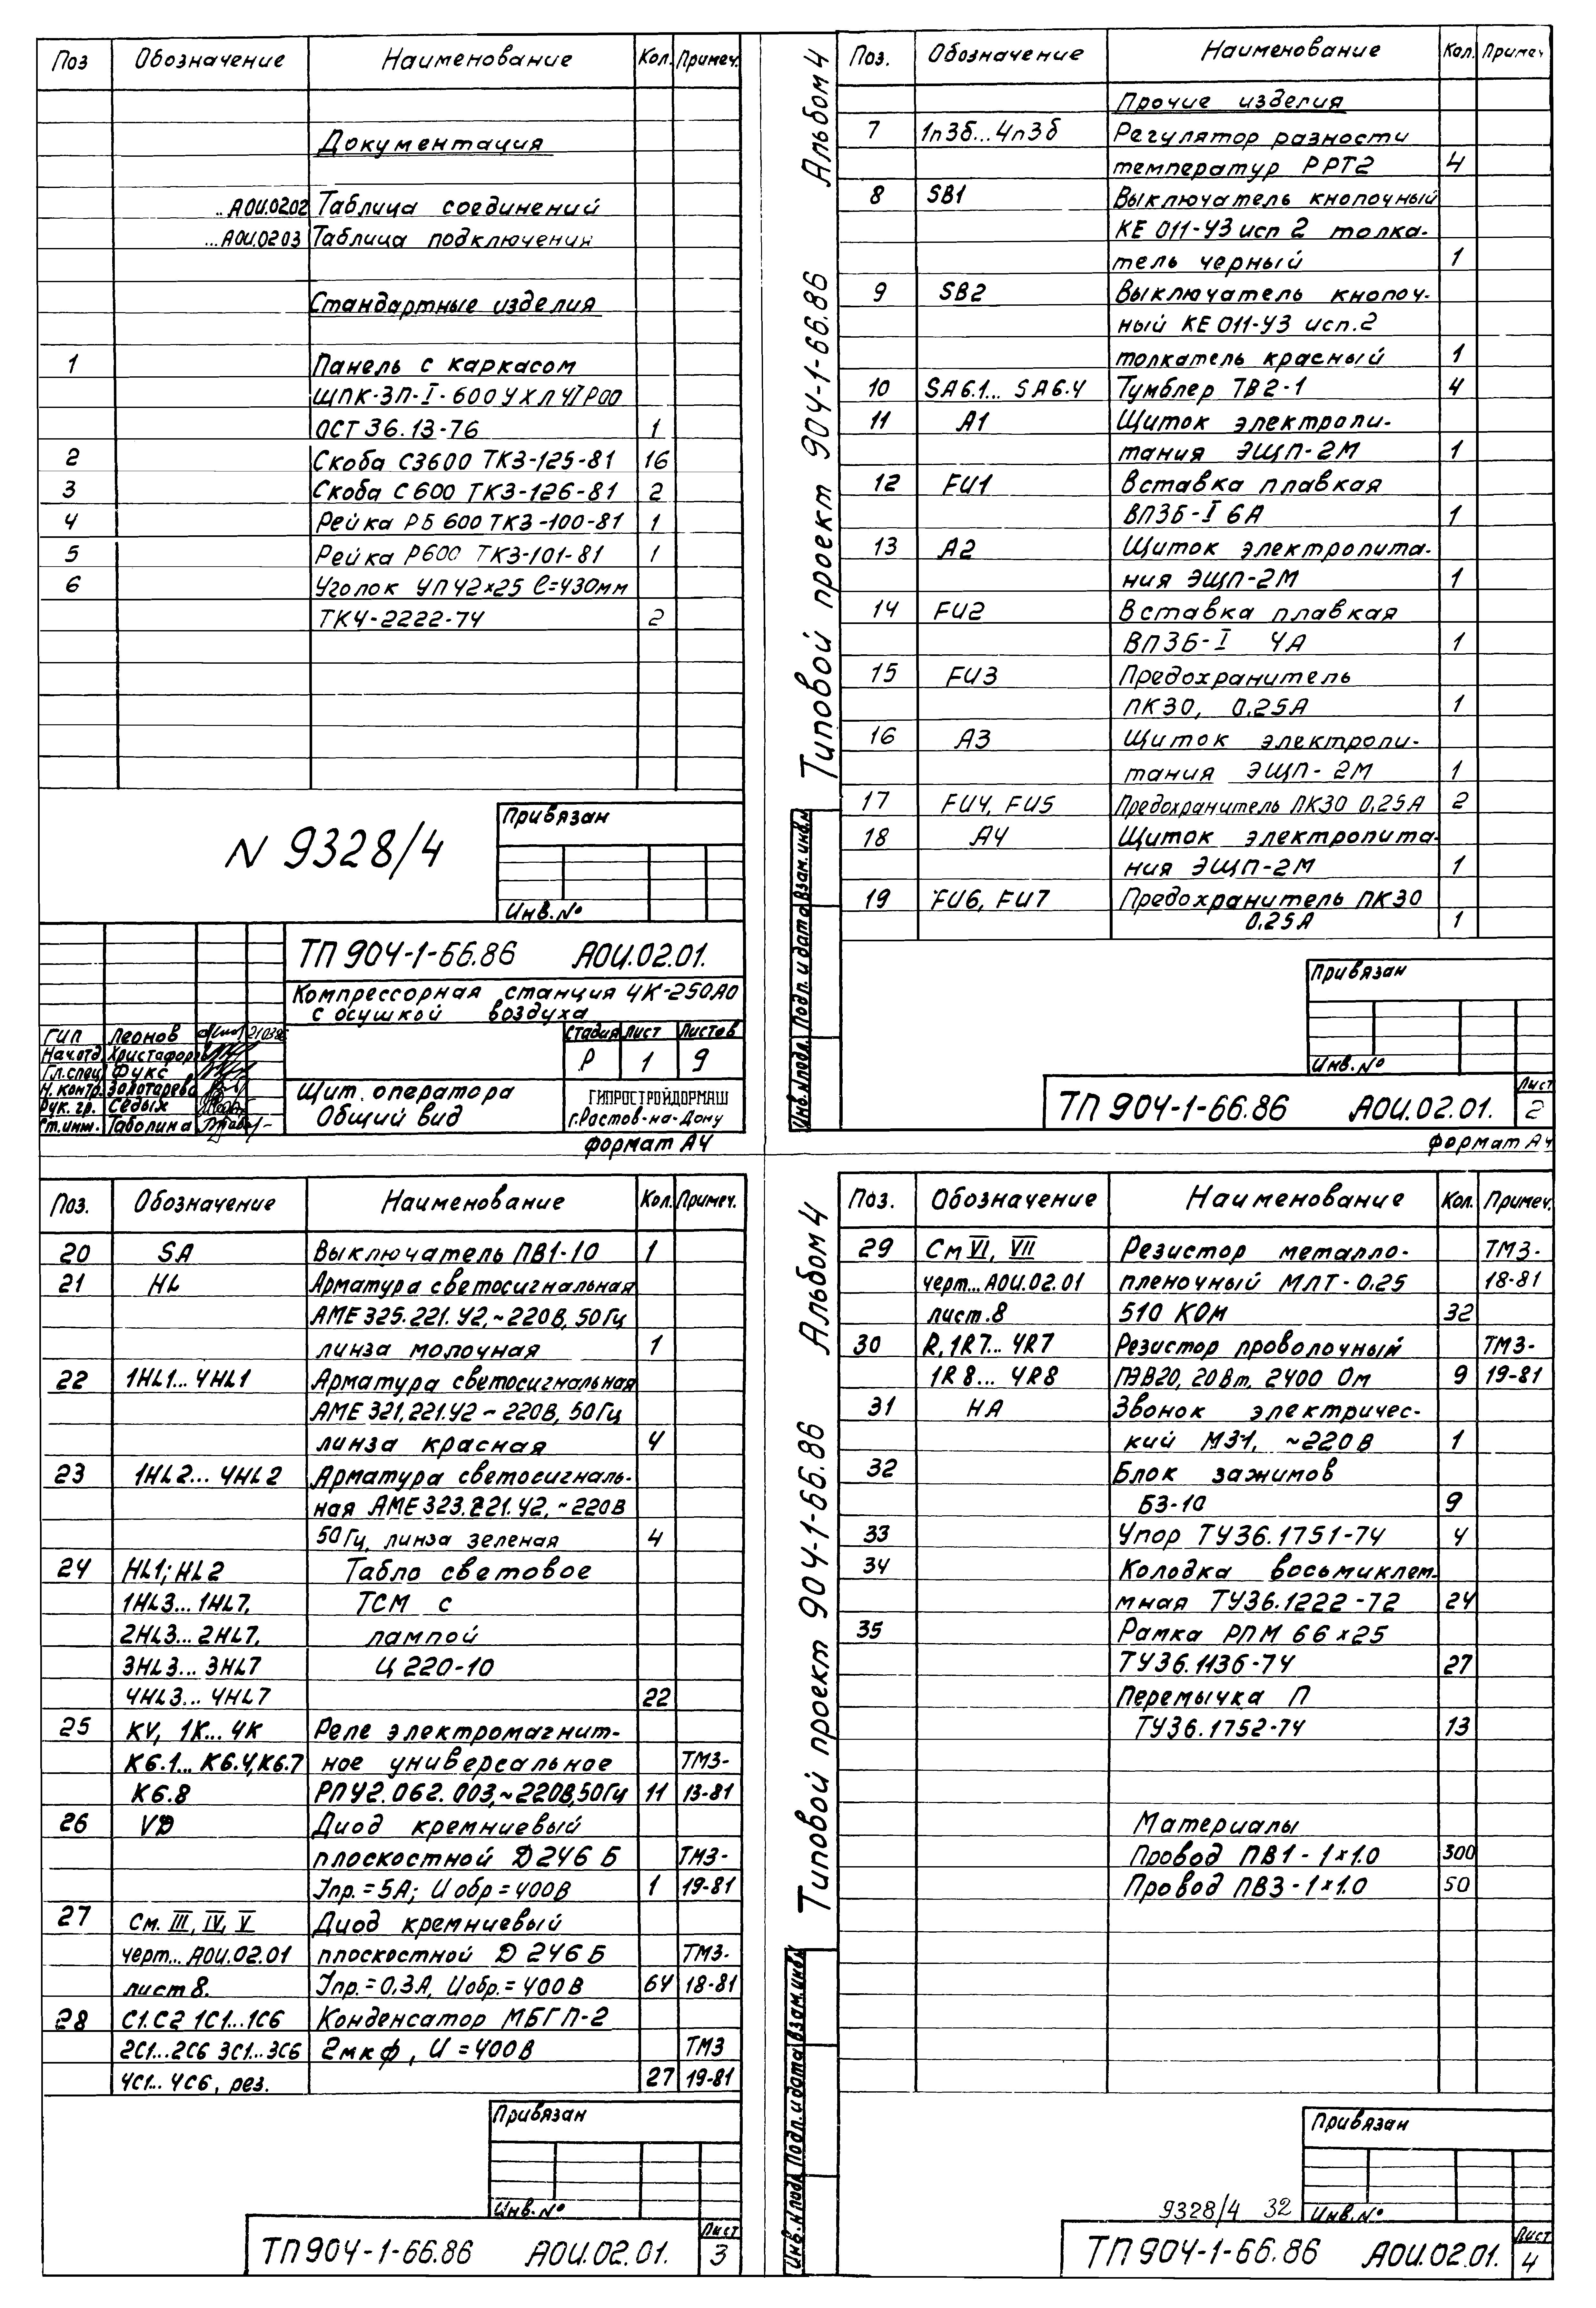 Поз Обозначение Наименование Кол. Примеч.
Документация
..АОИ.02.02 Таблица соединений
...АОИ.02.03 Таблица подключения
Стандартные изделия
1 Панель с каркасом
ЩПК-ЗП-I-600 УХЛ4 IP00
ОСТ 36.13-76 1
2 Скоба С3600 ТК3-125-81 16
3 Скоба С600 ТК3-126-81 2
4 Рейка РБ600 ТК3-100-81 1
5 Рейка Р600 ТК3-101-81 1
6 Уголок УП 42×25 ℓ=430мм
ТК4-2222-74 2
N 9328/4
Привязан
Инв.№
ТП 904-1-66.86 АОИ.02.01.
Компрессорная станция 4К-250АО
с осушкой воздуха
ГИП Леонов
Нач.отд. Христофоров
Гл.спец Фукс
Н.контр. Золотарева
Рук. гр. Седых
Ст.инж. Таболина
Стадия Лист Листов
Р 1 9
Щит оператора
Общий вид
ГИПРОСТРОЙДОРМАШ
г.Ростов-на-Дону
формат А4
Типовой проект 904-1-66.86 Альбом 4
Поз. Обозначение Наименование Кол. Примеч
Прочие изделия
7 1п3б...4п3б Регулятор разности
температур РРТ2 4
8 SB1 Выключатель кнопочный
КЕ 011-У3 исп 2 толка-
тель черный 1
9 SB2 Выключатель кнопоч-
ный КЕ 011-У3 исп.2
толкатель красный 1
10 SA6.1... SA6.4 Тумблер ТВ2-1 4
11 А1 Щиток электропи-
тания ЭЩП-2М 1
12 FU1 Вставка плавкая
ВП3Б-I 6А 1
13 А2 Щиток электропита-
ния ЭЩП-2М 1
14 FU2 Вставка плавкая
ВП3Б-I 4А 1
15 FU3 Предохранитель
ПК30, 0.25А 1
16 А3 Щиток электропи-
тания ЭЩП-2М 1
17 FU4, FU5 Предохранитель ПК30 0,25А 2
18 А4 Щиток электропита-
ния ЭЩП-2М 1
19 FU6, FU7 Предохранитель ПК30
0.25А 1
Инв.N подл. Подп. и дата Взам.инв.N
Привязан
Инв.№
ТП 904-1-66.86 АОИ.02.01. Лист
2
формат А4
Поз. Обозначение Наименование Кол. Примеч.
20 SA Выключатель ПВ1-10 1
21 HL Арматура светосигнальная
АМЕ 325.221.У2,~220В, 50Гц
линза молочная 1
22 1HL1... 4HL1 Арматура светосигнальная
АМЕ 321,221.У2 ~ 220В, 50Гц
линза красная 4
23 1HL2... 4HL2 Арматура светосигналь-
ная АМЕ 323.221.У2, ~220В
50Гц, линза зеленая 4
24 HL1; HL2 Табло световое
1HL3...1HL7, ТСМ с
2HL3...2HL7, лампой
3HL3...3HL7 Ц 220-10
4HL3...4HL7 22
25 KV, 1К...4К Реле электромагнит-
К6.1...К6.4,К6.7 ное универсальное ТМ3-
К6.8 РПУ2.062.003,~220В,50Гц 11 13-81
26 VD Диод кремниевый
плоскостной Д246Б ТМ3-
Iпр.=5А; Uобр=400В 1 19-81
27 См. III, IV, V Диод кремниевый
черт...АОИ.02.01 плоскостной Д 246Б ТМ3-
лист 8. Iпр.=0.3А, Uобр.=400В 64 18-81
28 С1.С2 1С1...1С6 Конденсатор МБГП-2
2С1...2С6 3С1...3С6 2мкф, U=400В ТМ3
4С1...4С6, рез. 27 19-81
Привязан
Инв.№
ТП 904-1-66.86 АОИ.02.01. Лист
3
Типовой проект 904-1-66.86 Альбом 4
Поз. Обозначение Наименование Кол. Примеч.
29 См VI, VII Резистор металло- ТМ3-
черт...АОИ.02.01 пленочный МЛТ-0.25 18-81
лист.8 510 КОм 32
30 R,1R7...4R7 Резистор проволочный ТМ3-
1R8...4R8 ПЭВ20, 20Вт, 2400 Ом 9 19-81
31 НА Звонок электричес-
кий МЗ-1, ~220В 1
32 Блок зажимов
БЗ-10 9
33 Упор ТУ36.1751-74 4
34 Колодка восьмиклем-
мная ТУ36.1222-72 24
35 Рамка РПМ 66×25
ТУ36.1136-74 27
Перемычка П
ТУ36.1752-74 13
Материалы
Провод ПВ1-1×1.0 300
Провод ПВ3-1×1.0 50
Инв.N подл. Подп. и дата Взам.инв.N
Привязан
9328/4 32 Инв.№
ТП 904-1-66.86 АОИ.02.01. Лист
4